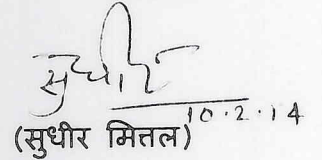 सुधीर
10.2.14
(सुधीर मित्तल)